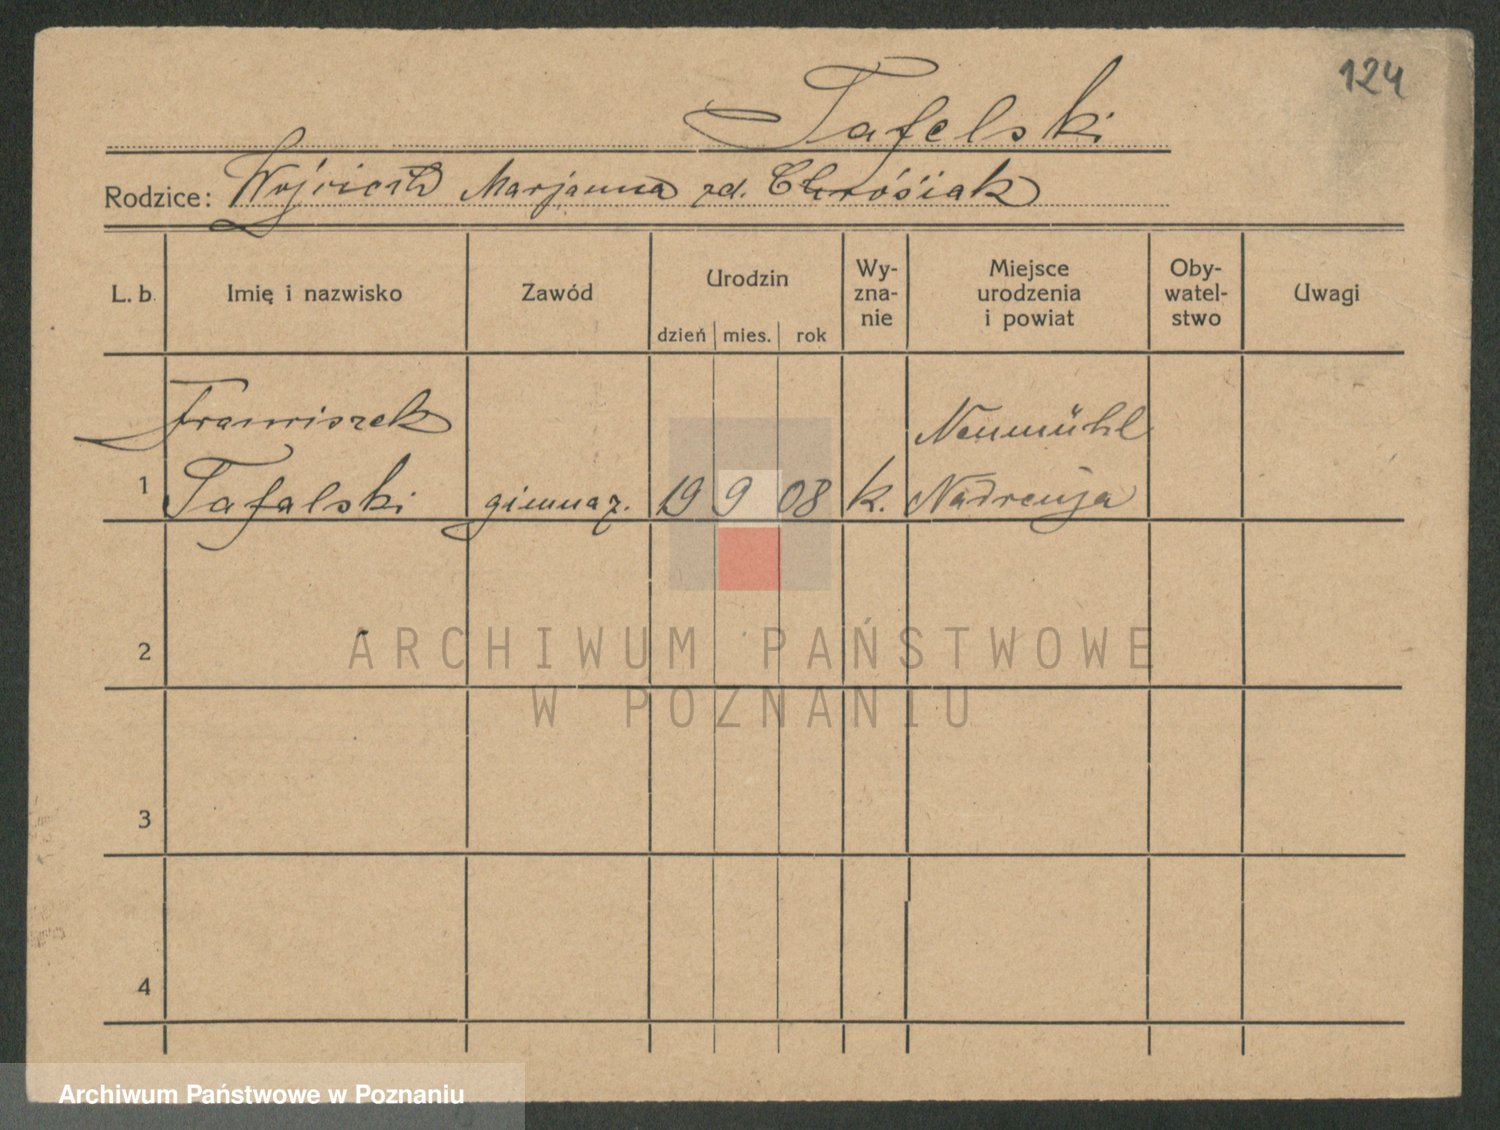 124
Tafelski
Rodzice: Wojciech Marjanna zd. Chróśiak
L. b. Imię i nazwisko Zawód Urodzin Wy- zna- nie Miejsce urodzenia i powiat Oby- watel- stwo Uwagi
dzień mies. rok
Franciszek Neumühl
1 Tafalski gimnaz. 19 9 08 k. Nadrenja
2
ARCHIWUM PAŃSTWOWE
W POZNANIU
3
4
Archiwum Państwowe w Poznaniu